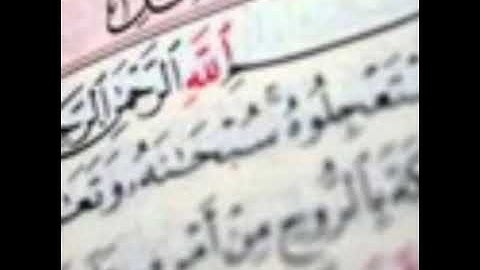 ٱللَّهِ ٱلرَّحْمَٰنِ ٱلرَّحِ
سْتَعْجِلُوهُ سُبْحَٰنَهُۥ وَتَعَٰ
كَةَ بِٱلرُّوحِ مِنْ أَمْرِ